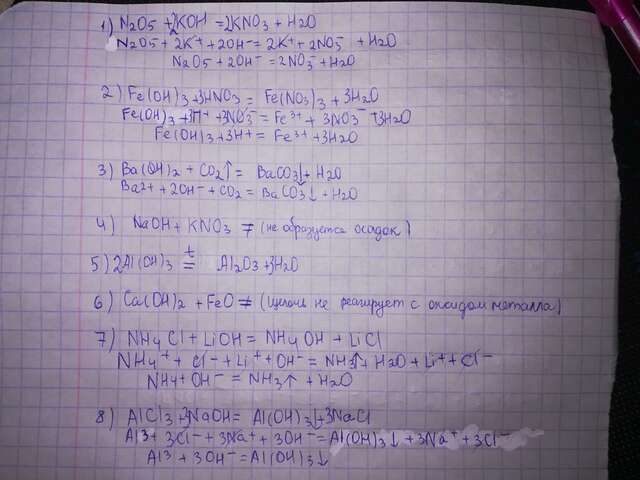 1) N2O5 + 2KOH = 2KNO3 + H2O
N2O5 + 2K+ + 2OH- = 2K+ + 2NO3- + H2O
N2O5 + 2OH- = 2NO3- + H2O
2) Fe(OH)3 + 3HNO3 = Fe(NO3)3 + 3H2O
Fe(OH)3 + 3H+ + 3NO3- = Fe3+ + 3NO3- + 3H2O
Fe(OH)3 + 3H+ = Fe3+ + 3H2O
3) Ba(OH)2 + CO2↑ = BaCO3↓ + H2O
Ba2+ + 2OH- + CO2 = BaCO3↓ + H2O
4) NaOH + KNO3 ≠ (не образуется осадок)
5) 2Al(OH)3 t= Al2O3 + 3H2O
6) Ca(OH)2 + FeO ≠ (щелочь не реагирует с оксидом металла)
7) NH4Cl + LiOH = NH4OH + LiCl
NH4+ + Cl- + Li+ + OH- = NH3↑ + H2O + Li+ + Cl-
NH4 + OH- = NH3↑ + H2O
8) AlCl3 + 3NaOH = Al(OH)3↓ + 3NaCl
Al3 + 3Cl- + 3Na+ + 3OH- = Al(OH)3↓ + 3Na+ + 3Cl-
Al3 + 3OH- = Al(OH)3↓